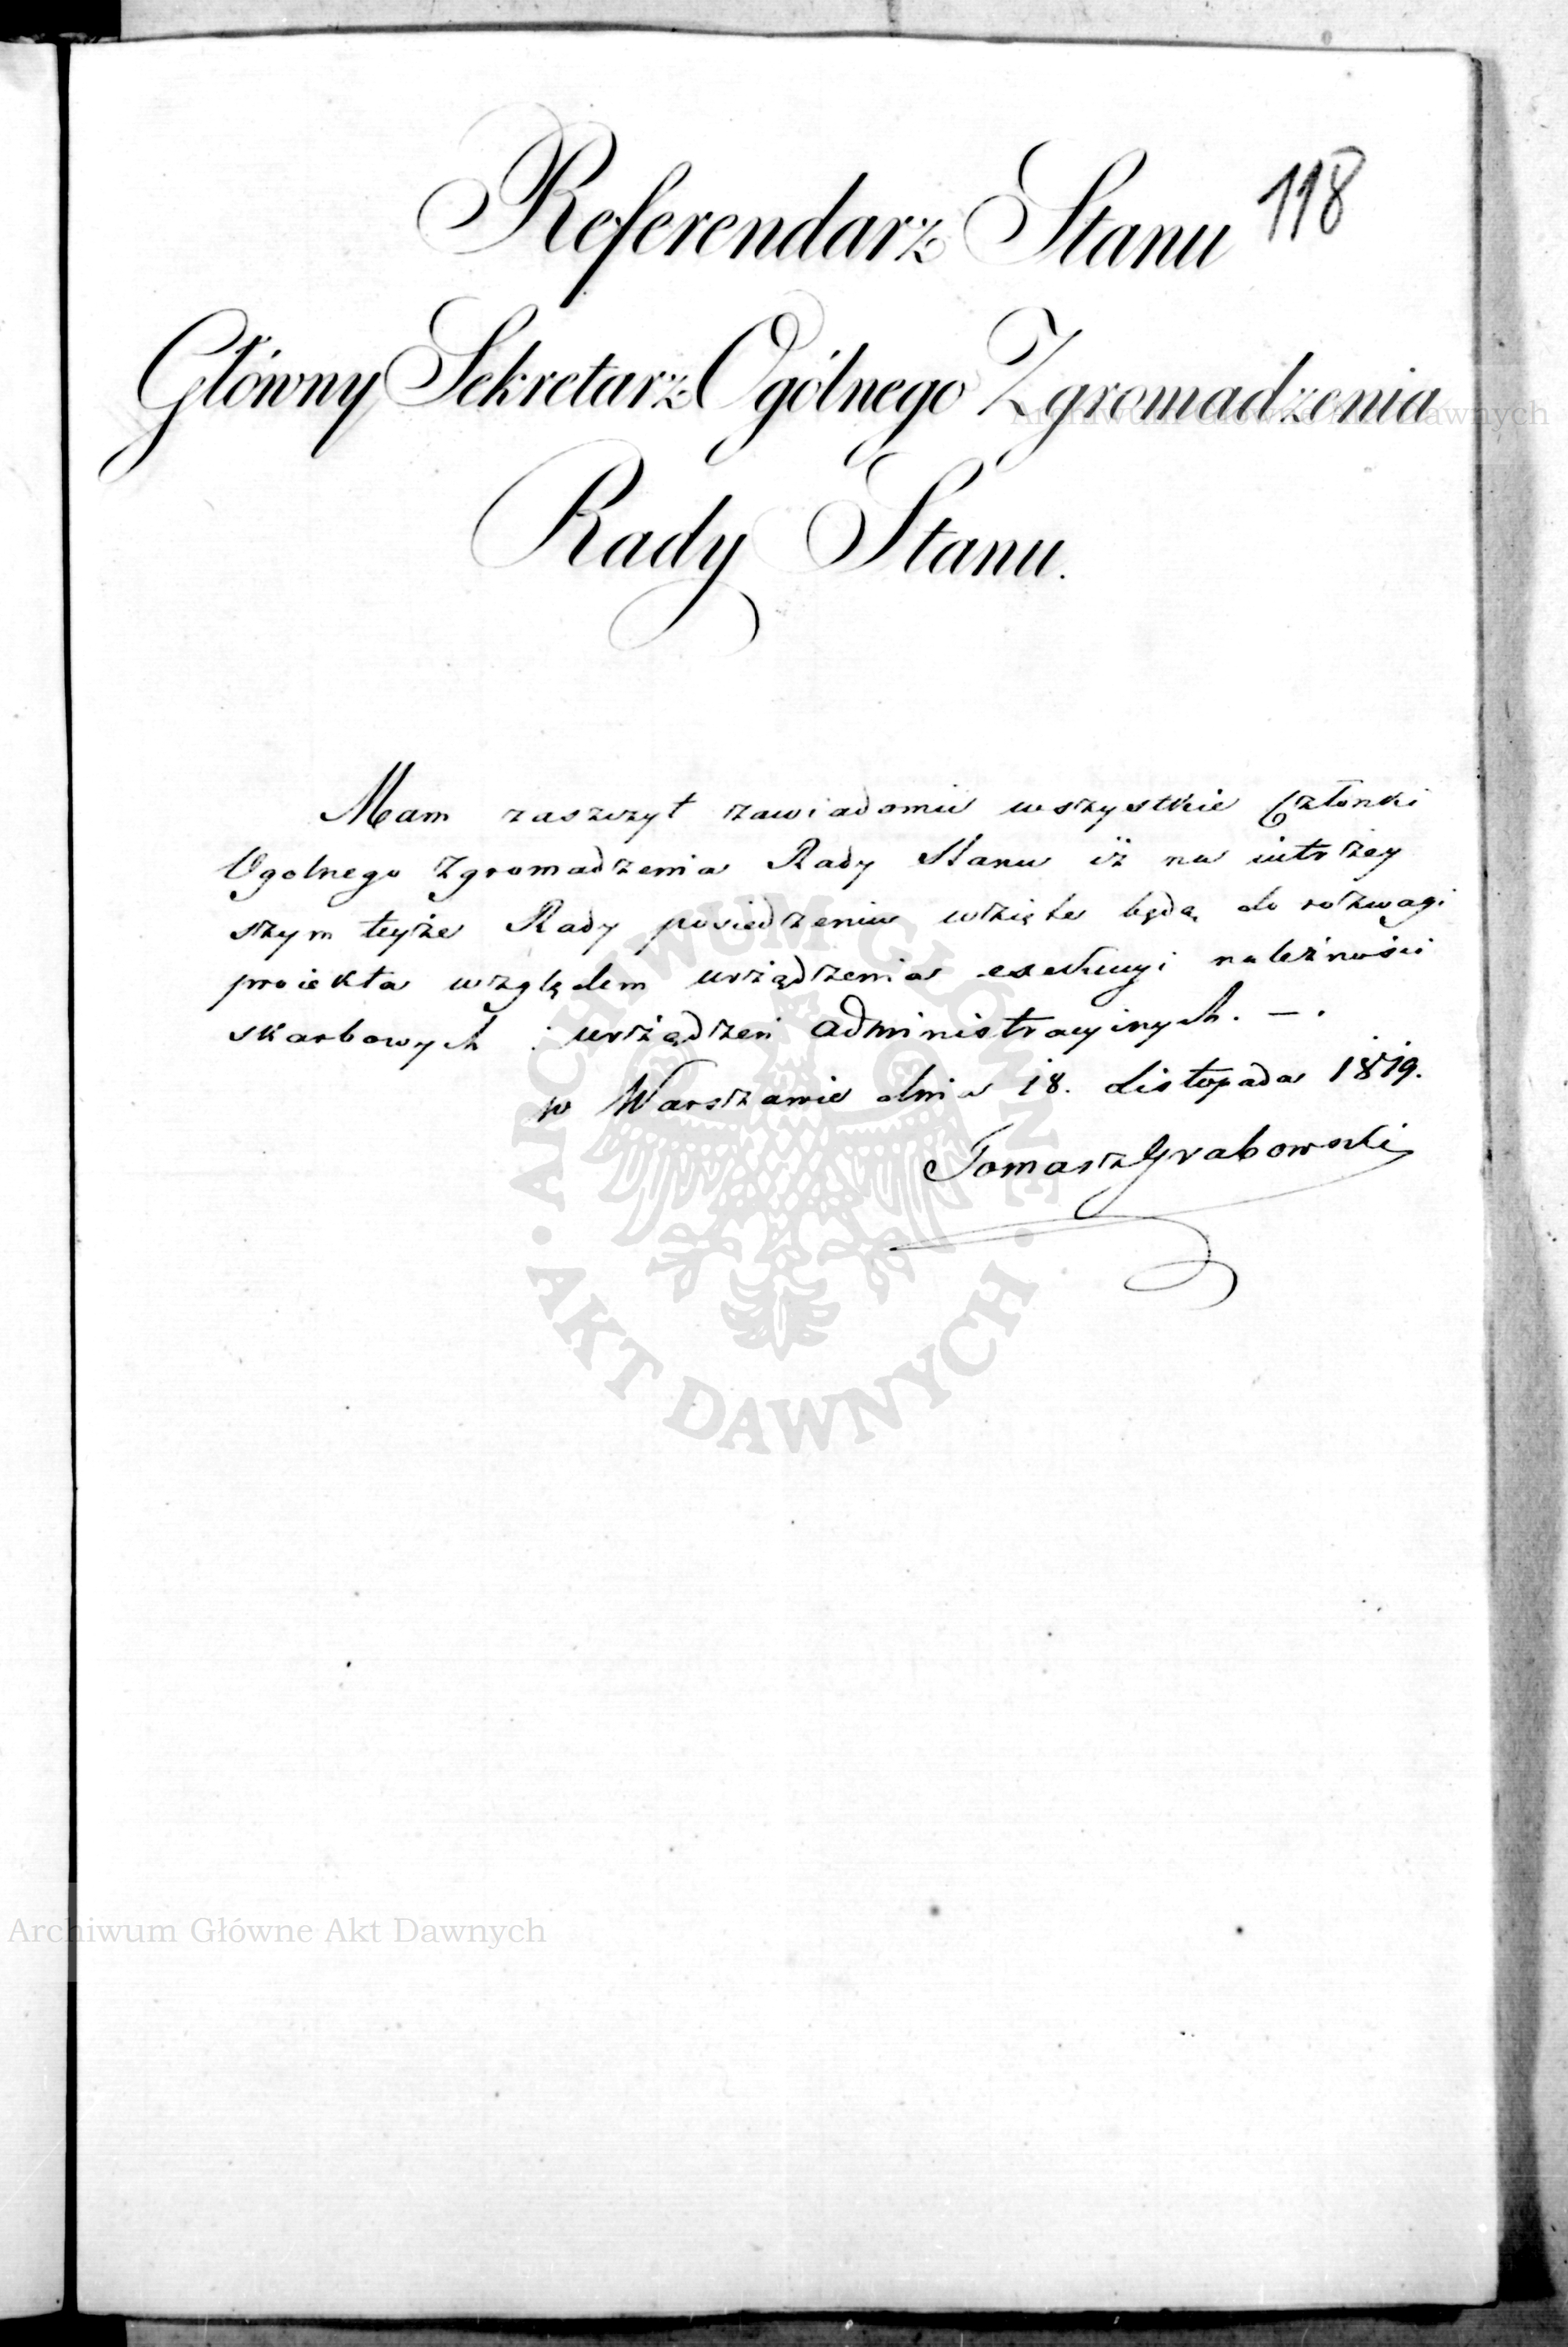 118
Referendarz Stanu
Główny Sekretarz Ogólnego Zgromadzenia
Rady Stanu.
Mam zaszczyt zawiadomić wszystkie Członki
Ogolnego Zgromadzenia Rady Stanu iż na iutrzey
szym teyże Rady posiedzeniu wzięte będą do rozwagi
proiekta względem urządzenia exekucyi należności
skarbowych i urządzeń administracyinych. — .
w Warszawie dnia 18. Listopada 1819.
Tomasz Grabowski
Archiwum Główne Akt Dawnych
ARCHIWUM GŁÓWNE
AKT DAWNYCH
Archiwum Główne Akt Dawnych